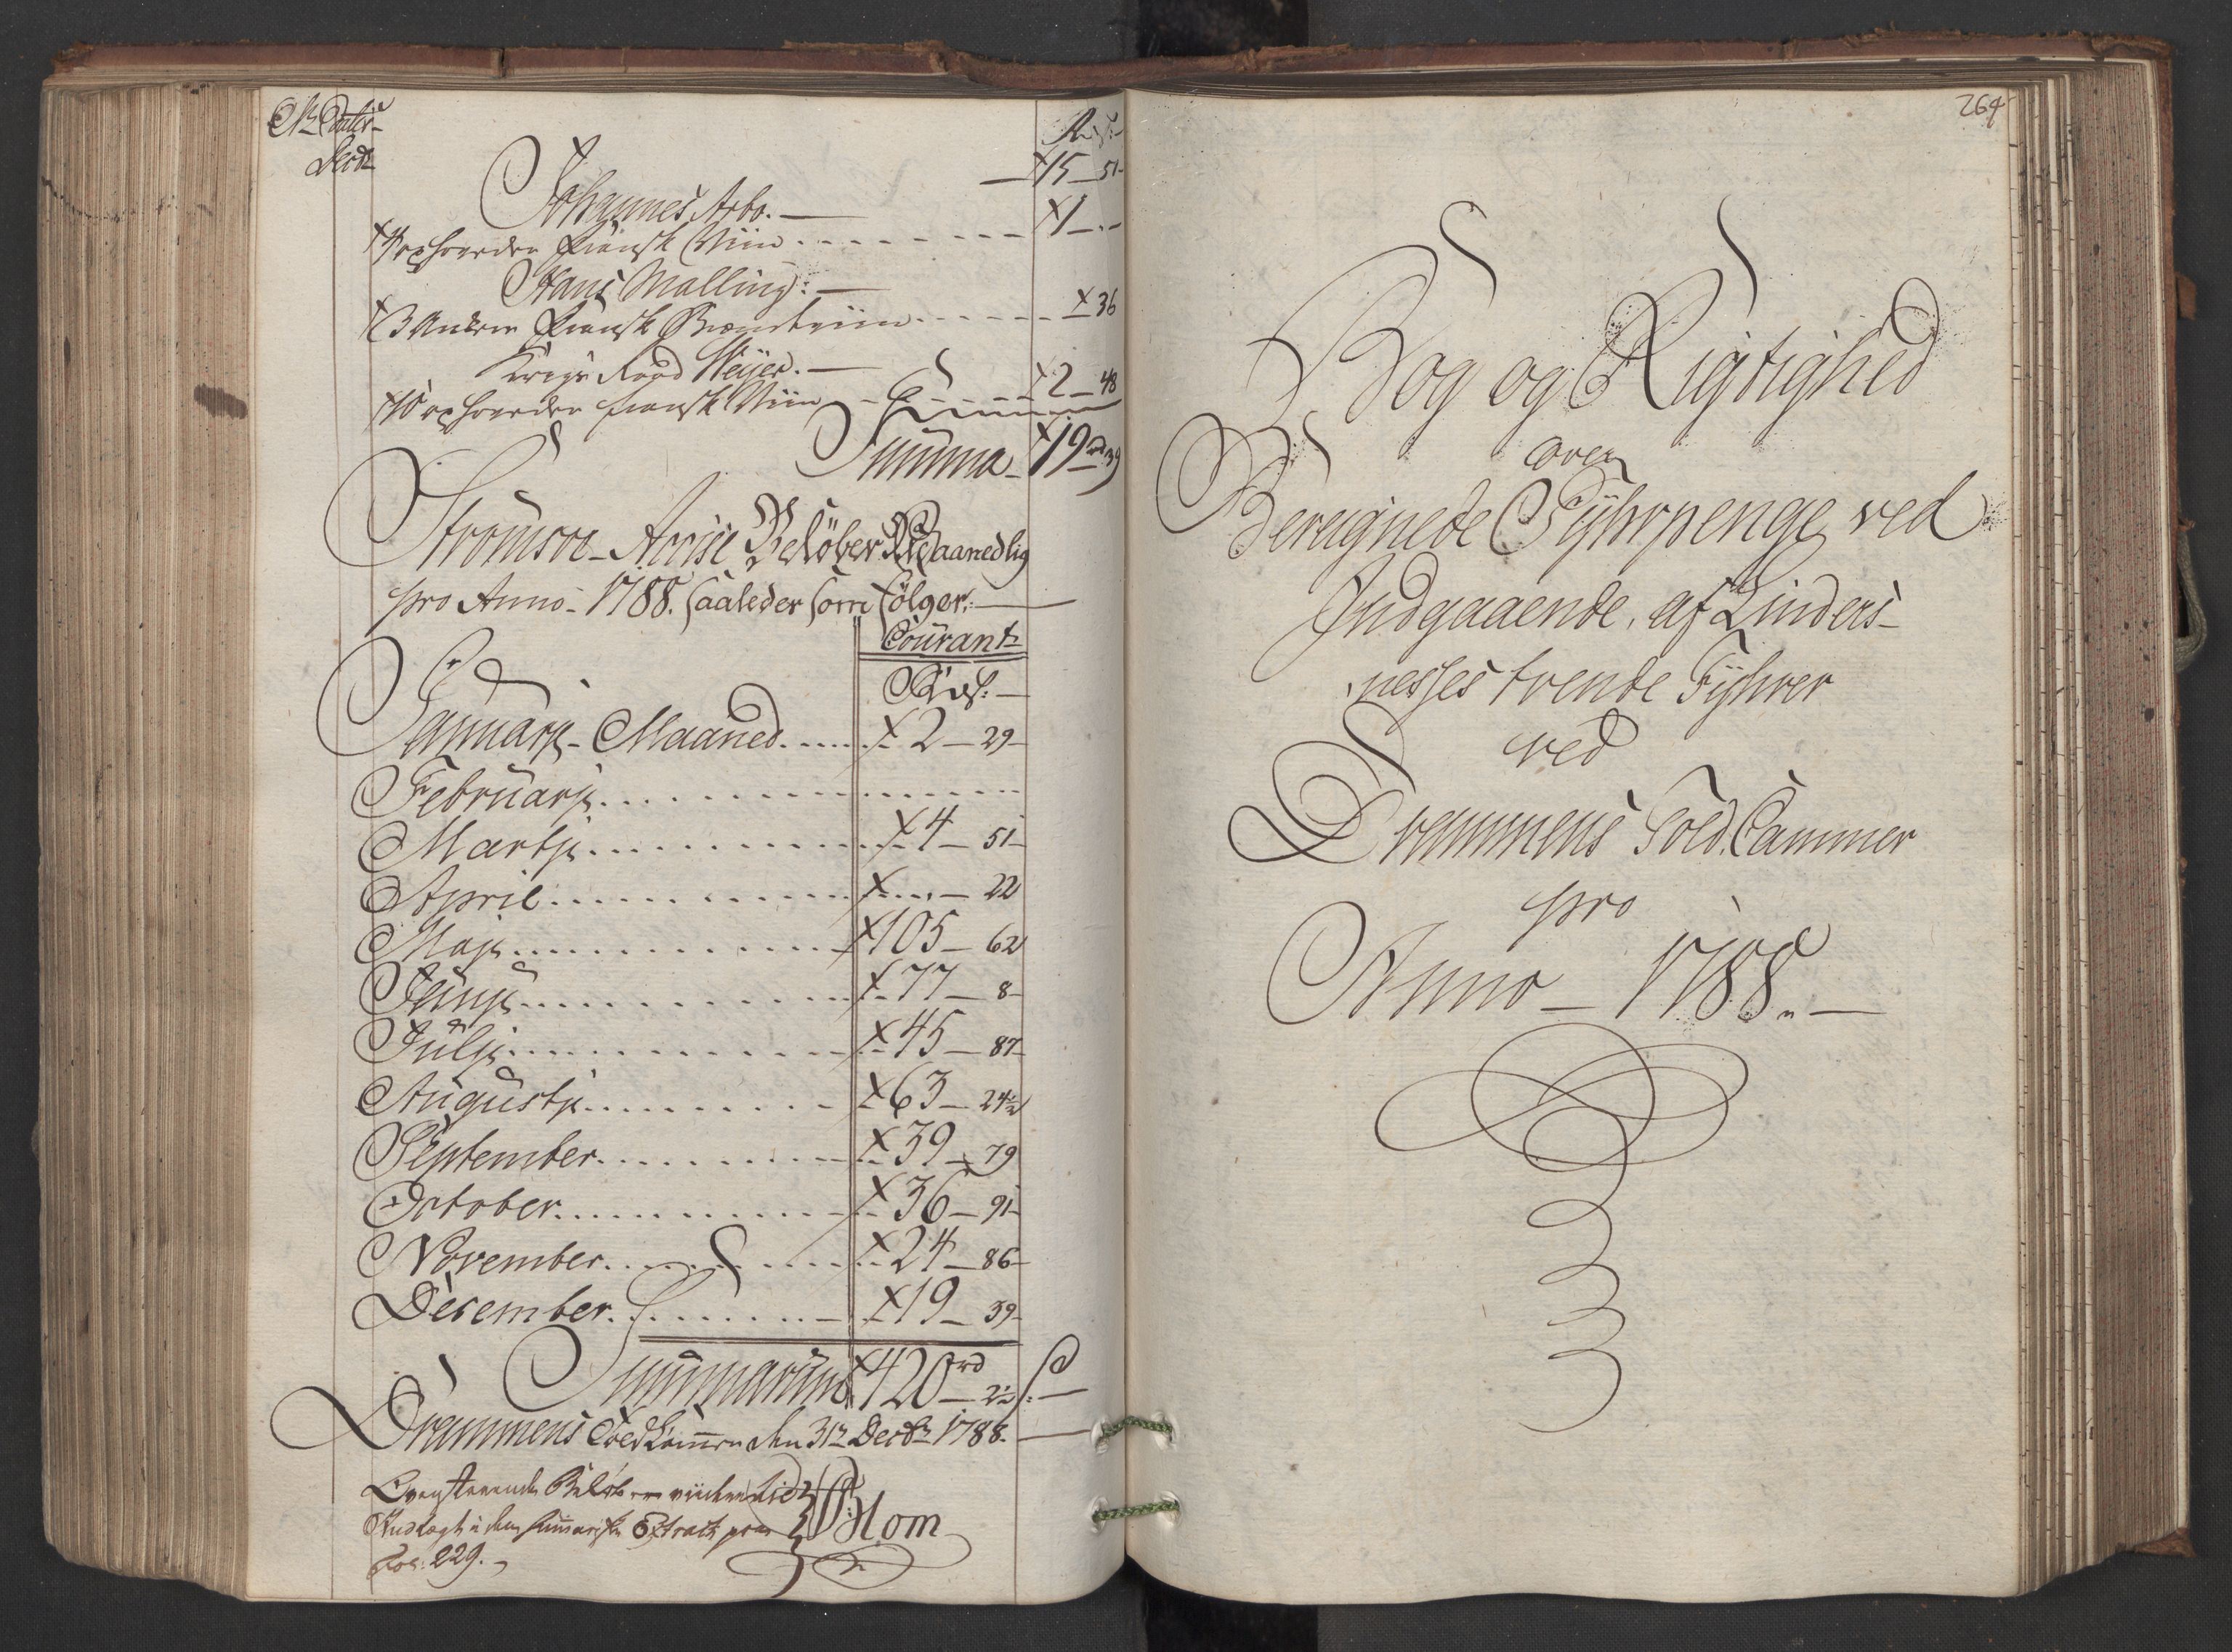 Datir
Decbr
Rd s:
15 51
Johannes Arbo.
4 oxhoveder fransk Viin 1
Hans Malling:
3 Ankere fransk Brændeviin 36
Krigs Raad Weyer.
10 oxhoveder fransk Viin 2 48
Summa 19 rd 39
Strømsøe Accise Beløber Maanedlig
pro Anno 1788. saaleder som følger.
Courant
Rd s:
Januarij Maaned 2 29
Februarij
Martij 4 51
April 22
Maji 105 62
Junij 77 8
Julij 45 87
Augustij 63 24½
September 39 79
October 36 91
November 24 86
December 19 39
Summarum 420 rd 2½ s:
Drammens Toldkammer den 31te Decbr 1788.
Ovenstaaende Beløb er rigtig
Andragt i den summariske Extract pag
Fol: 229.
Blom
264
Bog og Rigtighed
over
Bereignede Fyhrpenge ved
Indgaaende, af Linders-
nesses trende Fyhrer
ved
Drammens Told Cammer
pro
Anno 1788.